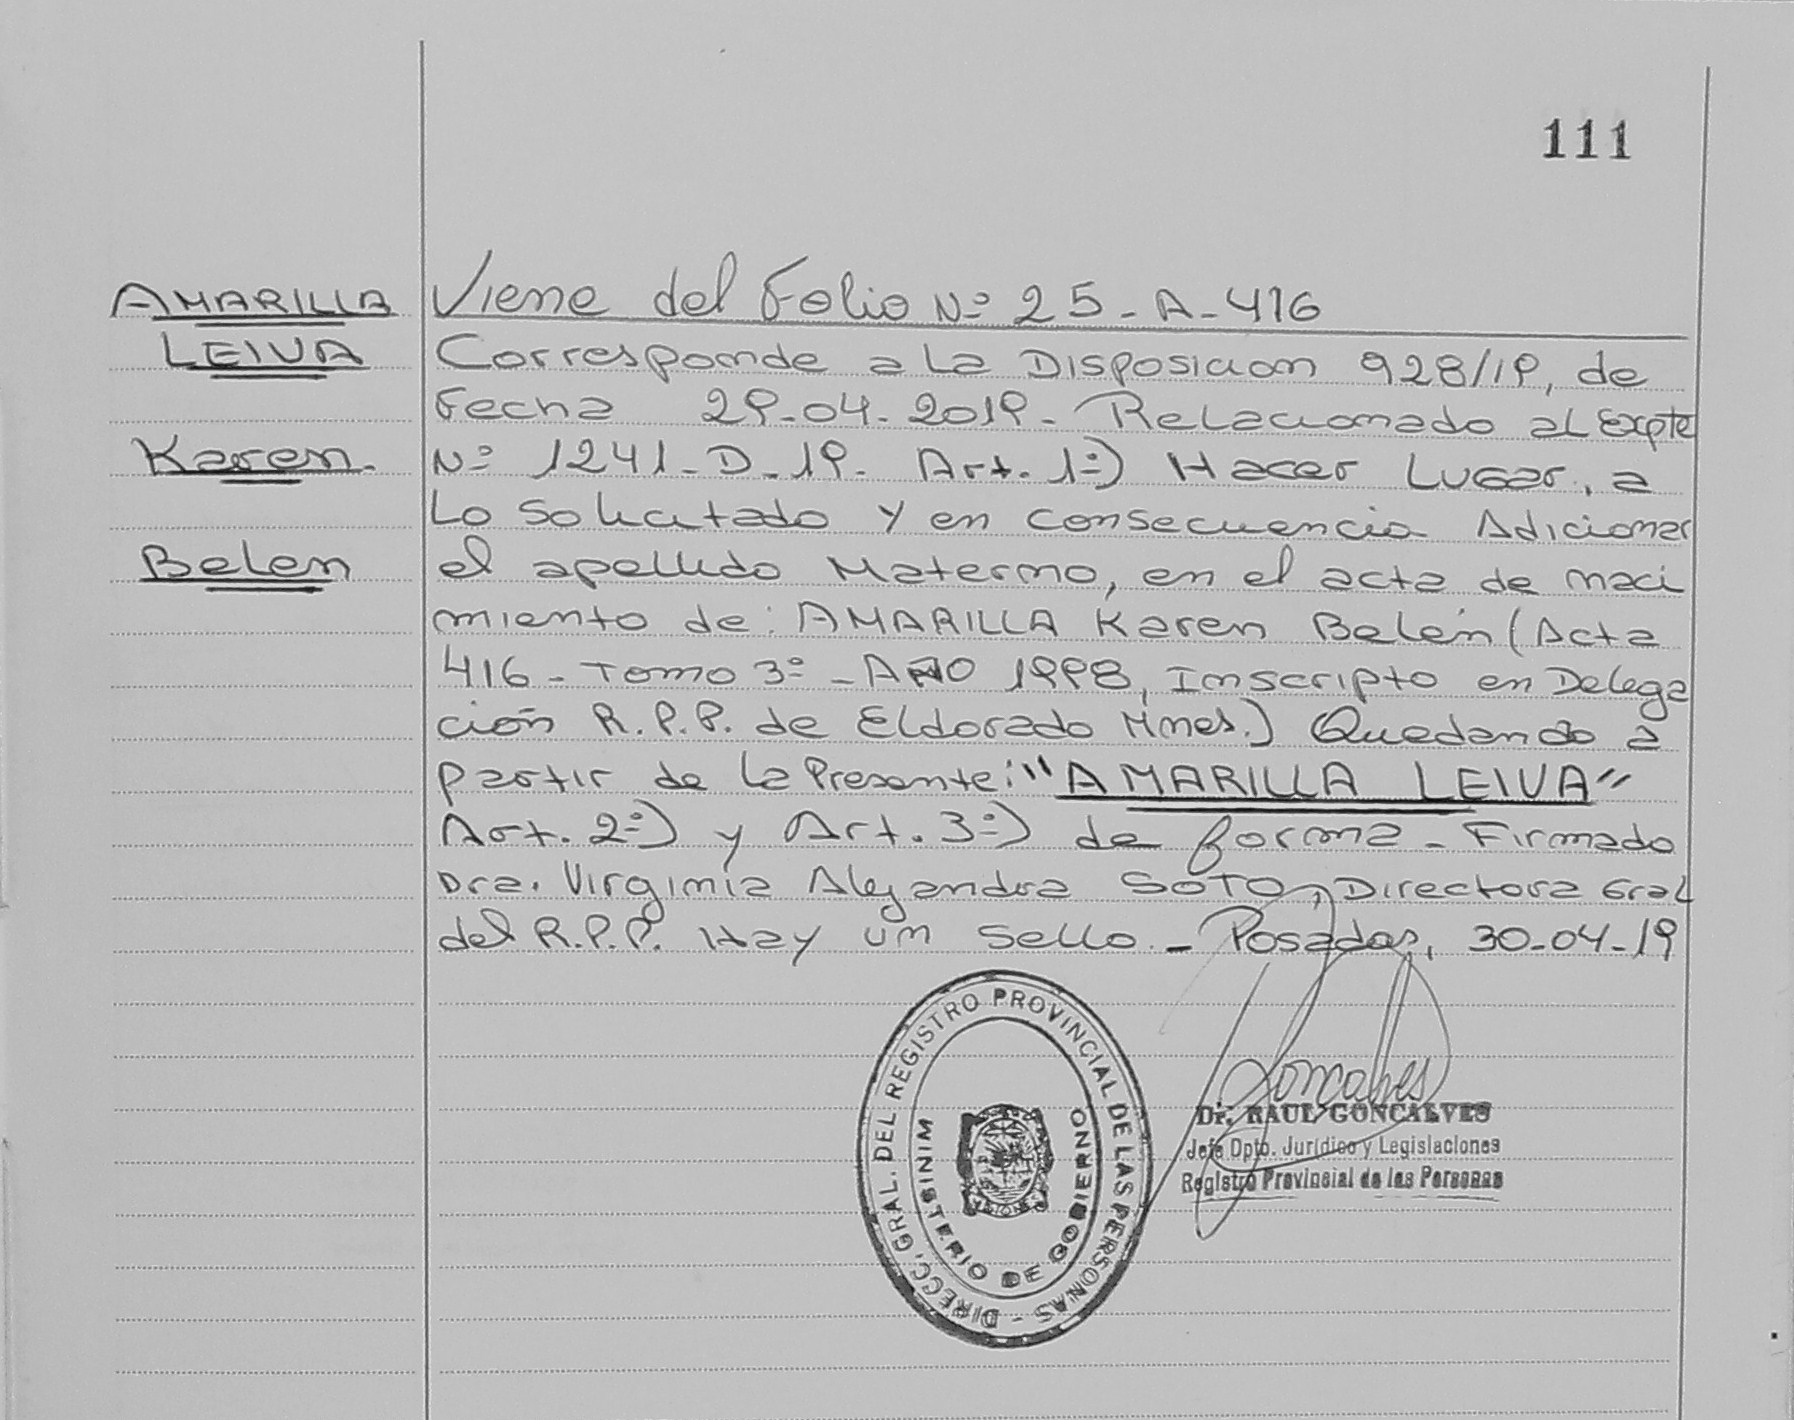 111
AMARILLA
LEIVA
Karen.
Belen
Viene del Folio Nº 25-A-416
Corresponde a La Disposicion 928/19, de
Fecha 29-04-2019- Relacionado al Expte
Nº 1241-D-19. Art. 1º) Hacer Lugar, a
Lo Solicitado y en consecuencia Adicionar
el apellido Materno, en el acta de naci
miento de: AMARILLA Karen Belén (Acta
416- Tomo 3º - AÑO 1998, Inscripto en Delega
ción R.P.P. de Eldorado Mnes.) Quedando a
partir de la Presente: "AMARILLA LEIVA"
Art. 2º) y Art. 3º) de forma - Firmado
Dra. Virginia Alejandra SOTO, Directora Gral
del R.P.P. Hay un Sello.- Posadas, 30-04-19
DIRECC. GRAL. DEL REGISTRO PROVINCIAL DE LAS PERSONAS -
MINISTERIO DE GOBIERNO
MISIONES
Goncalves
Dr. RAUL GONCALVES
Jefe Dpto. Jurídico y Legislaciones
Registro Provincial de las Personas